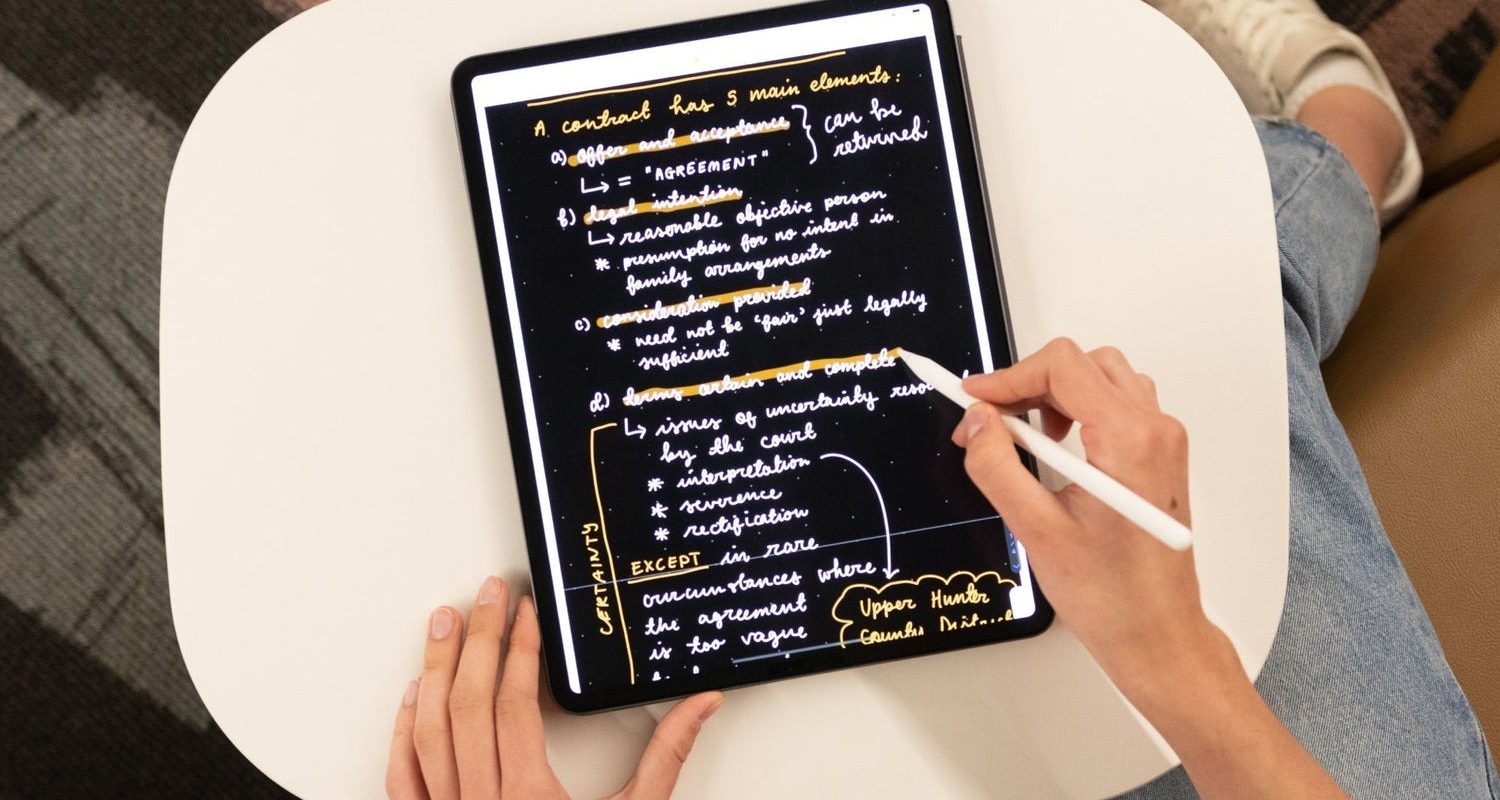 A contract has 5 main elements:
a) offer and acceptance } can be
↳ = "AGREEMENT" returned
b) legal intention
↳ reasonable objective person
* presumption for no intent in
family arrangements
c) consideration provided
* need not be 'fair' just legally
sufficient
d) terms certain and complete
↳ issues of uncertainty
by the court
* interpretation
* severence
* rectification
EXCEPT in rare
circumstances where
the agreement
is too vague
CERTAINTY
Upper Hunter
County